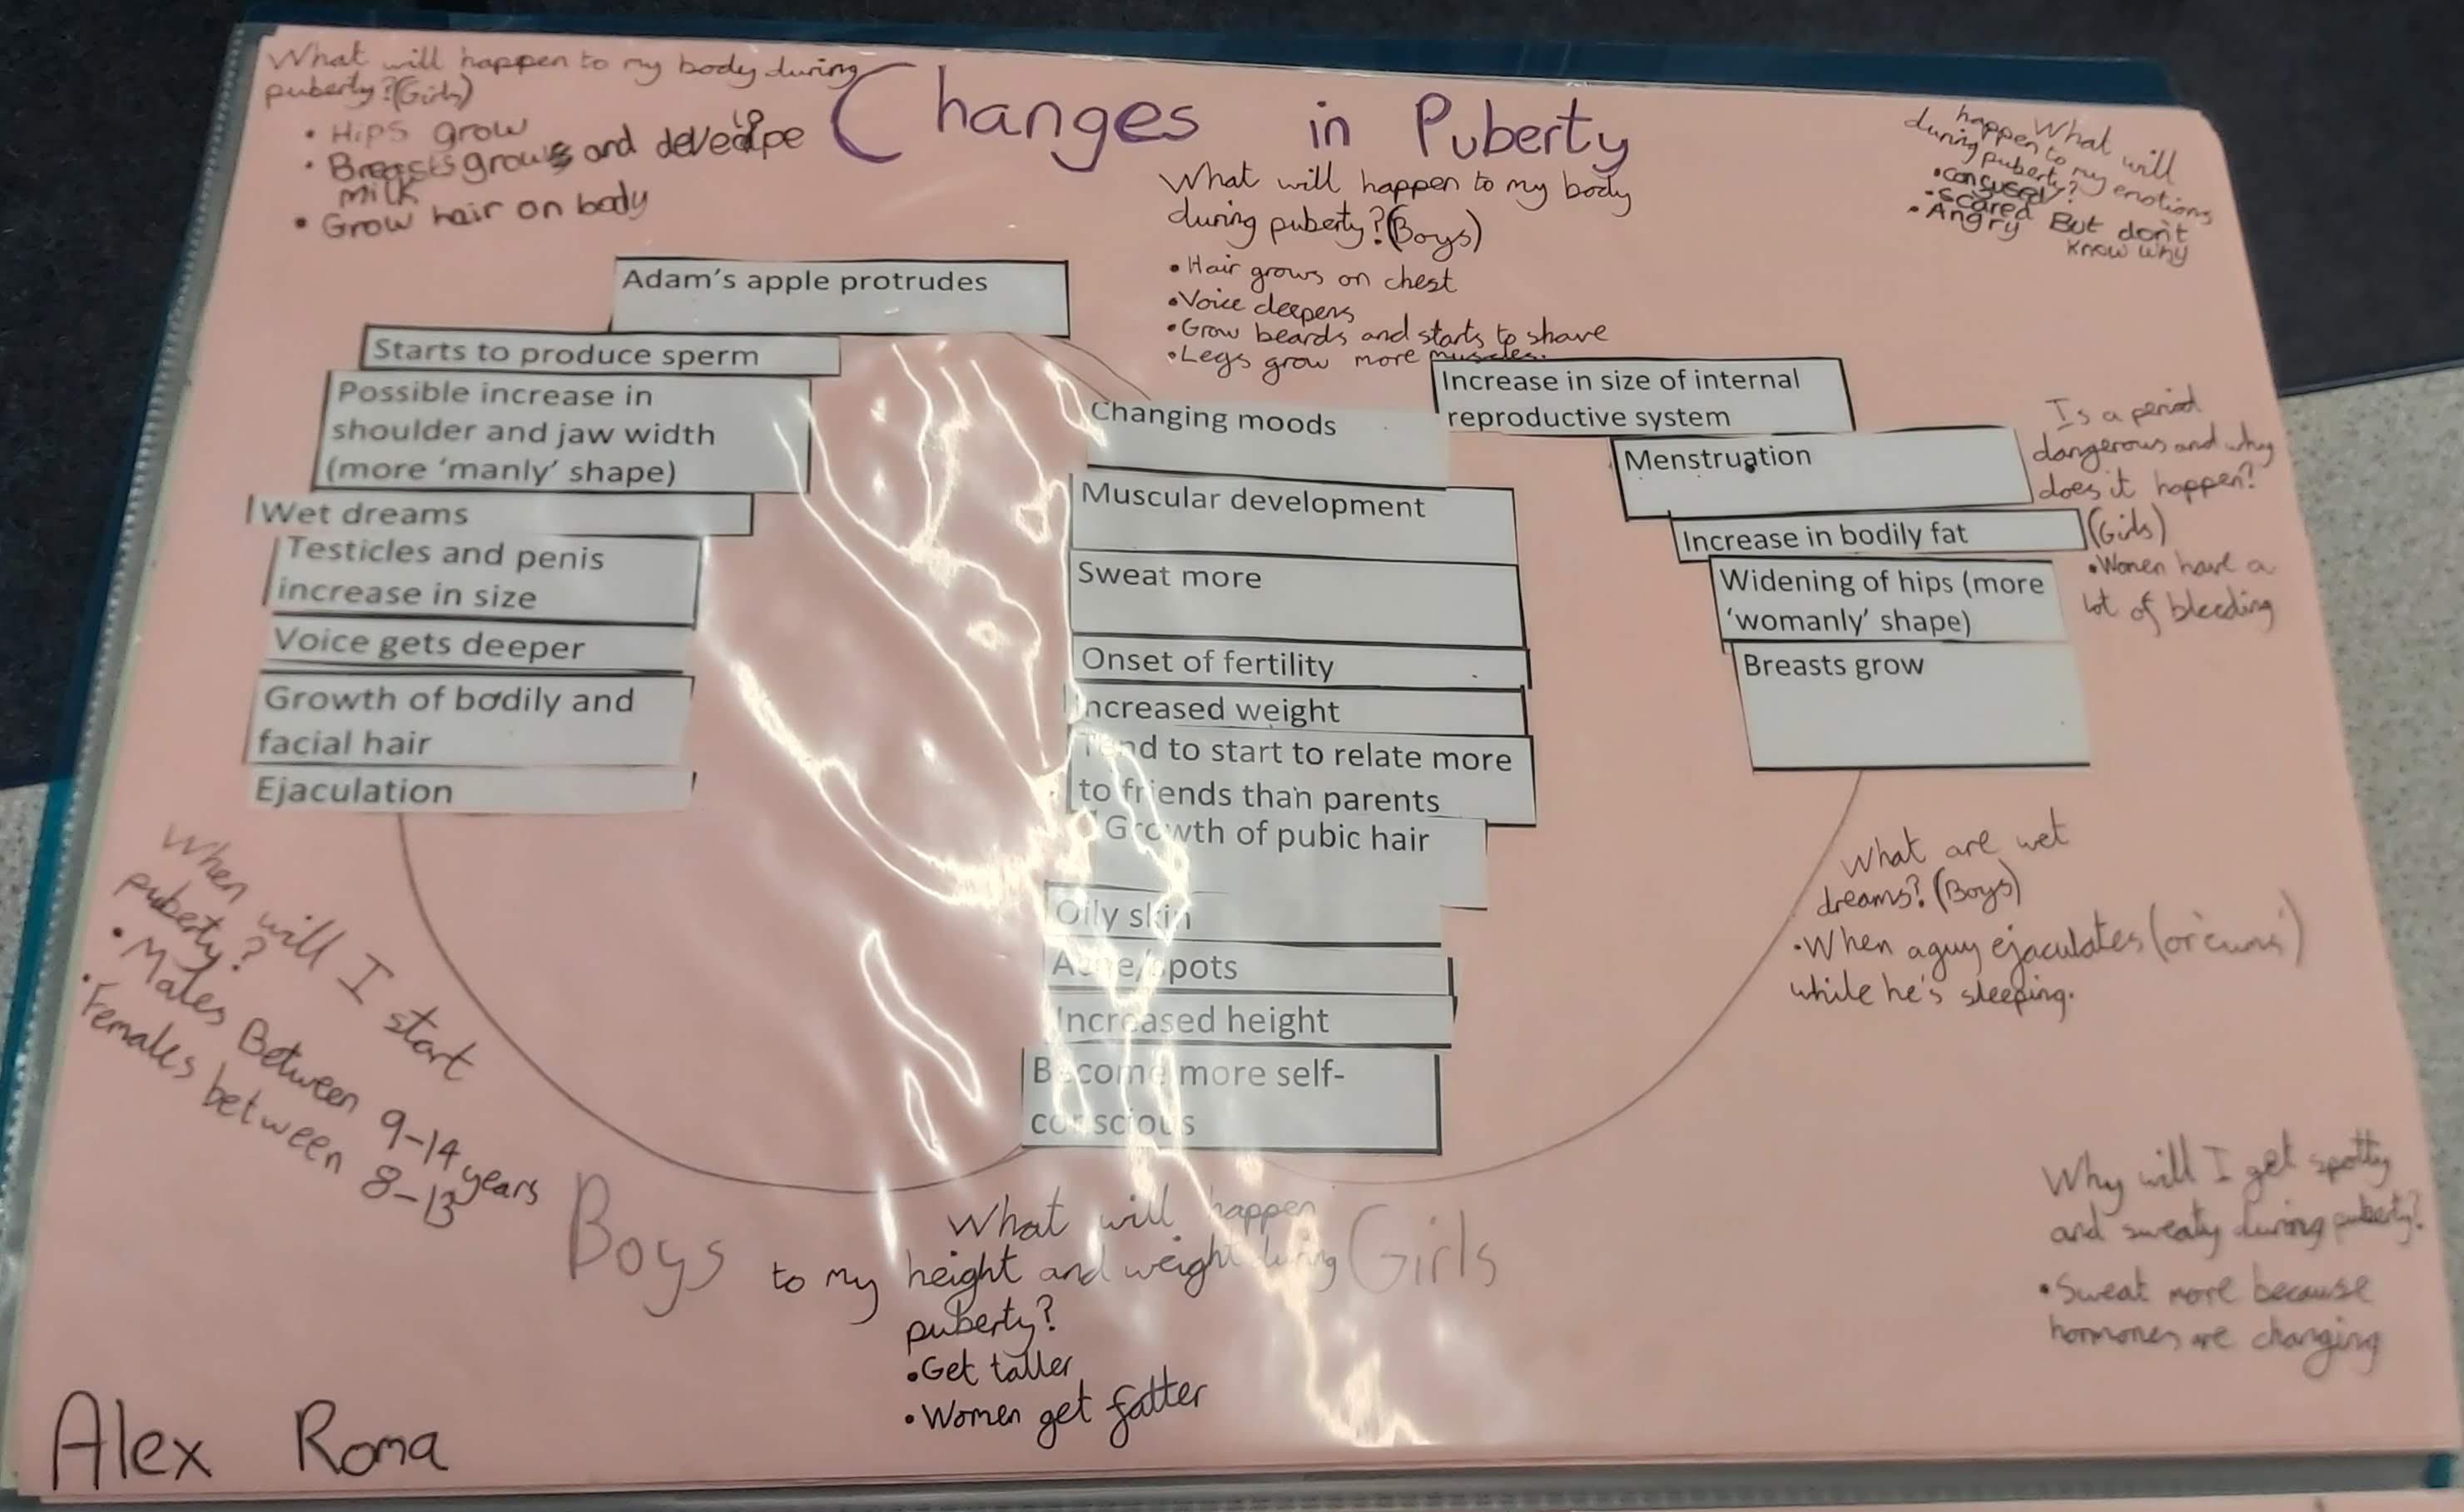 What will happen to my body during
puberty? (Girls)
• Hips grow
• Breasts grows and develope
milk
• Grow hair on body
Changes in Puberty
What will happen to my body
during puberty? (Boys)
• Hair grows on chest
• Voice deepens
• Grow beards and starts to shave
• Legs grow more muscles.
What will
happen to my emotions
during puberty?
• confused
• Scared
• Angry
But don't
know why
Adam's apple protrudes
Starts to produce sperm
Possible increase in
shoulder and jaw width
(more 'manly' shape)
Wet dreams
Testicles and penis
increase in size
Voice gets deeper
Growth of bodily and
facial hair
Ejaculation
Changing moods
Muscular development
Sweat more
Onset of fertility
Increased weight
Tend to start to relate more
to friends than parents
Growth of pubic hair
Oily skin
Acne/spots
Increased height
Become more self-
conscious
Increase in size of internal
reproductive system
Menstruation
Increase in bodily fat
Widening of hips (more
'womanly' shape)
Breasts grow
Is a period
dangerous and why
does it happen?
(Girls)
• Women have a
lot of bleeding
What are wet
dreams? (Boys)
• When a guy ejaculates (or 'cums')
while he's sleeping.
When will I start
puberty?
• Males Between 9-14 years
• Females between 8-13
Boys
Girls
What will happen
to my height and weight during
puberty?
• Get taller
• Women get fatter
Why will I get spotty
and sweaty during puberty?
• Sweat more because
hormones are changing
Alex Roma